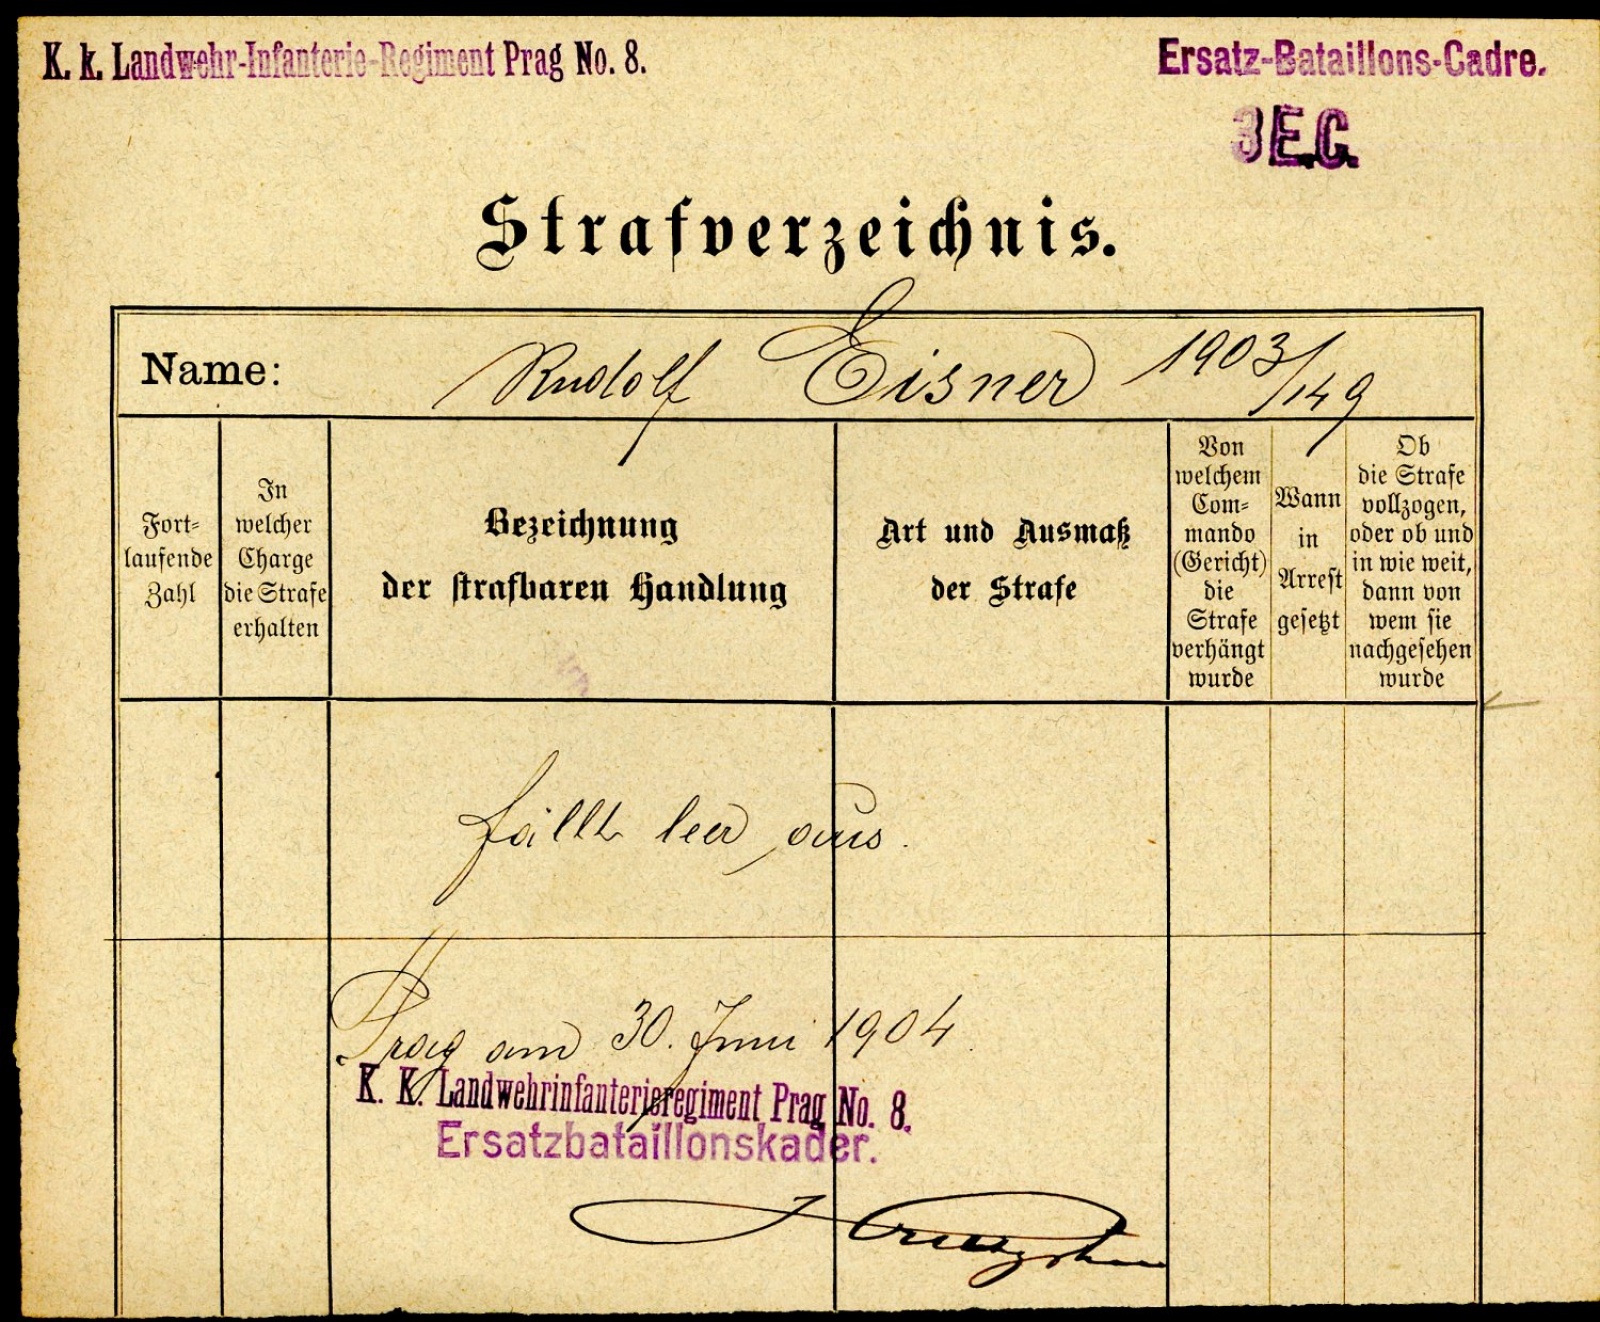 K. k. Landwehr-Infanterie-Regiment Prag No. 8.
Ersatz-Bataillons-Cadre.
3 E.C.
Strafverzeichnis.
Name: Rudolf Eisner 1903/149
Fort=
laufende
Zahl
In
welcher
Charge
die Strafe
erhalten
Bezeichnung
der strafbaren Handlung
Art und Ausmaß
der Strafe
Von
welchem
Com=
mando
(Gericht)
die
Strafe
verhängt
wurde
Wann
in
Arrest
gesetzt
Ob
die Strafe
vollzogen,
oder ob und
in wie weit,
dann von
wem sie
nachgesehen
wurde
fällt leer aus.
Prag am 30. Juni 1904
K. K. Landwehrinfanterieregiment Prag No. 8.
Ersatzbataillonskader.